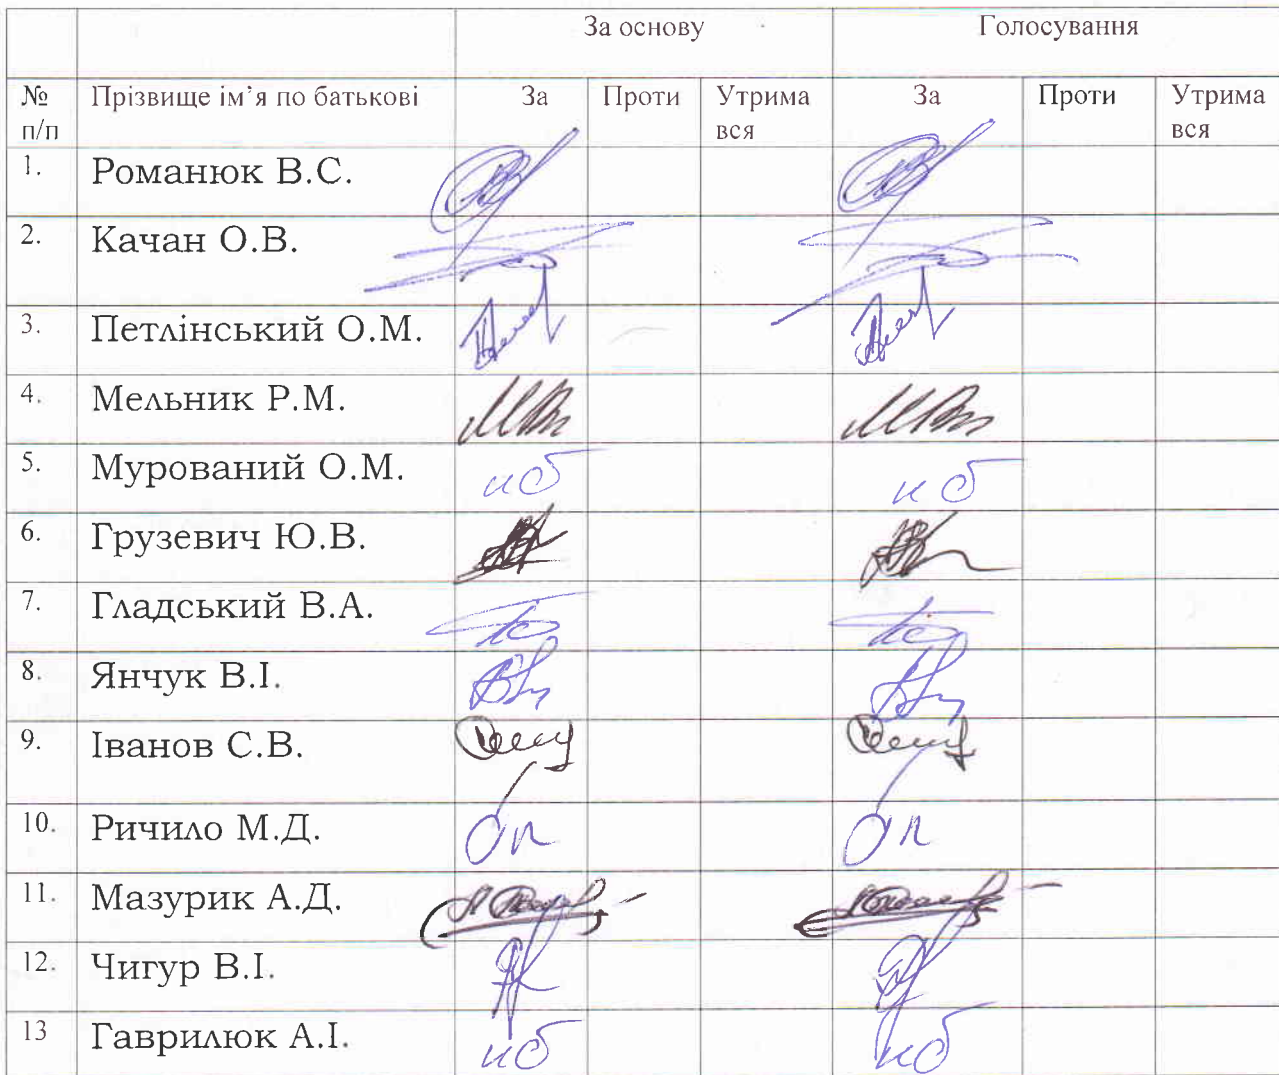 За основу Голосування
№ Прізвище ім’я по батькові За Проти Утрима За Проти Утрима
п/п вся вся
1. Романюк В.С.
2. Качан О.В.
3. Петлінський О.М.
4. Мельник Р.М.
5. Мурований О.М. нб нб
6. Грузевич Ю.В.
7. Гладський В.А.
8. Янчук В.І.
9. Іванов С.В.
10. Ричило М.Д.
11. Мазурик А.Д.
12. Чигур В.І.
13 Гаврилюк А.І. нб нб